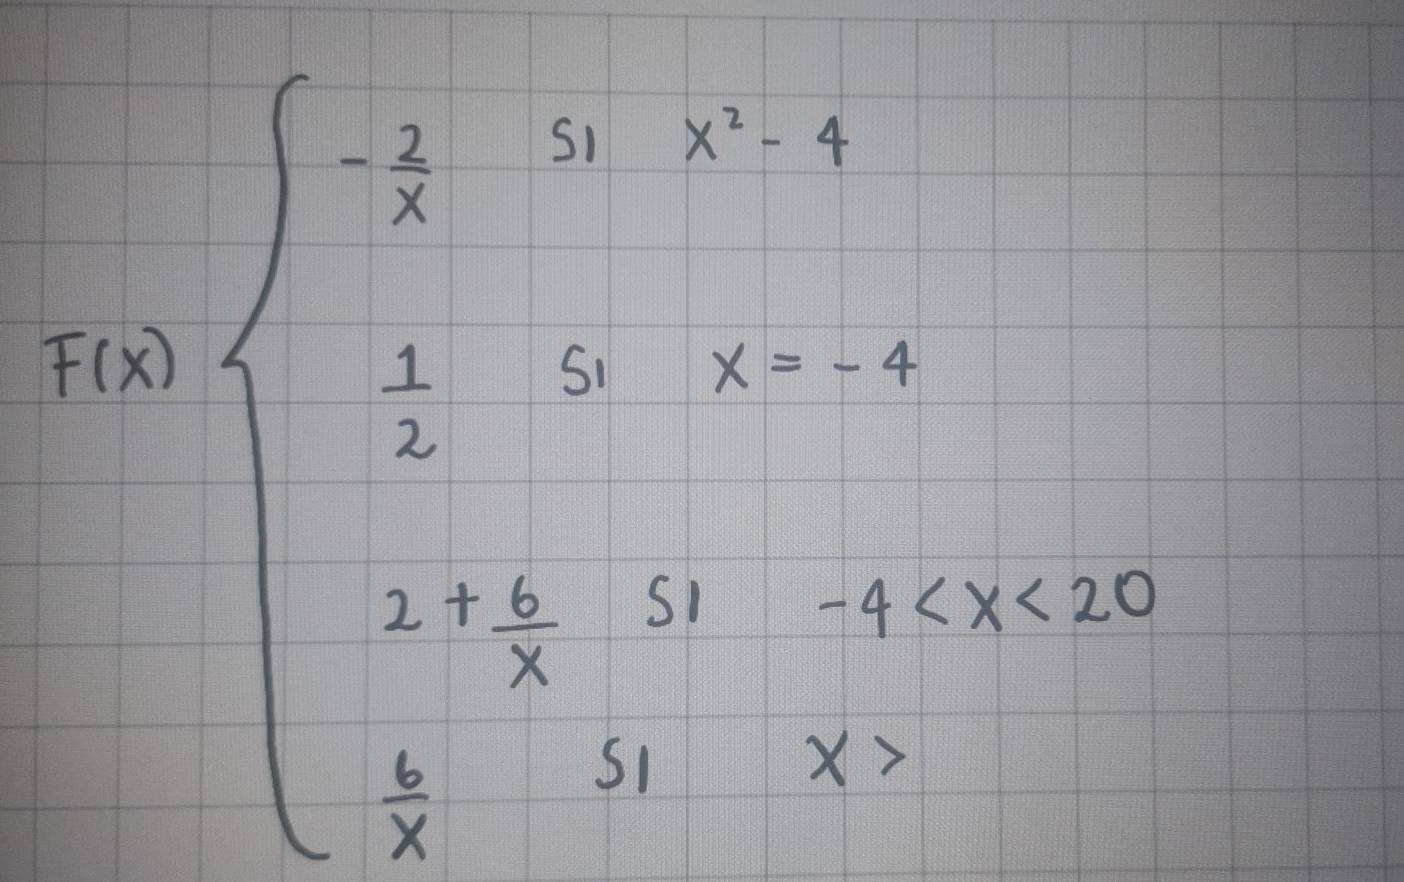 F(x) { -2/x SI x² - 4
1/2 SI x = -4
2 + 6/x SI -4 < x < 20
6/x SI x >